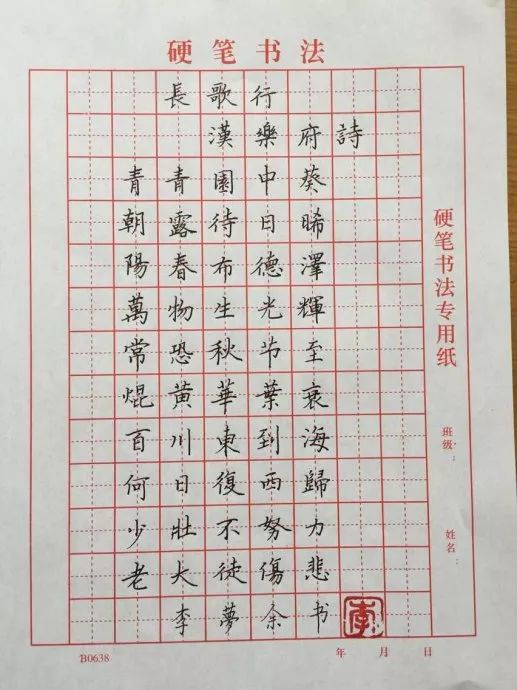 硬笔书法
長歌行
漢樂府詩
青青園中葵
朝露待日晞
陽春布德澤
萬物生光輝
常恐秋节至
焜黃華葉衰
百川東到海
何日復西歸
少壯不努力
老大徒傷悲
李夢余书
李
硬笔书法专用纸
班级：
姓名：
B0638
年 月 日